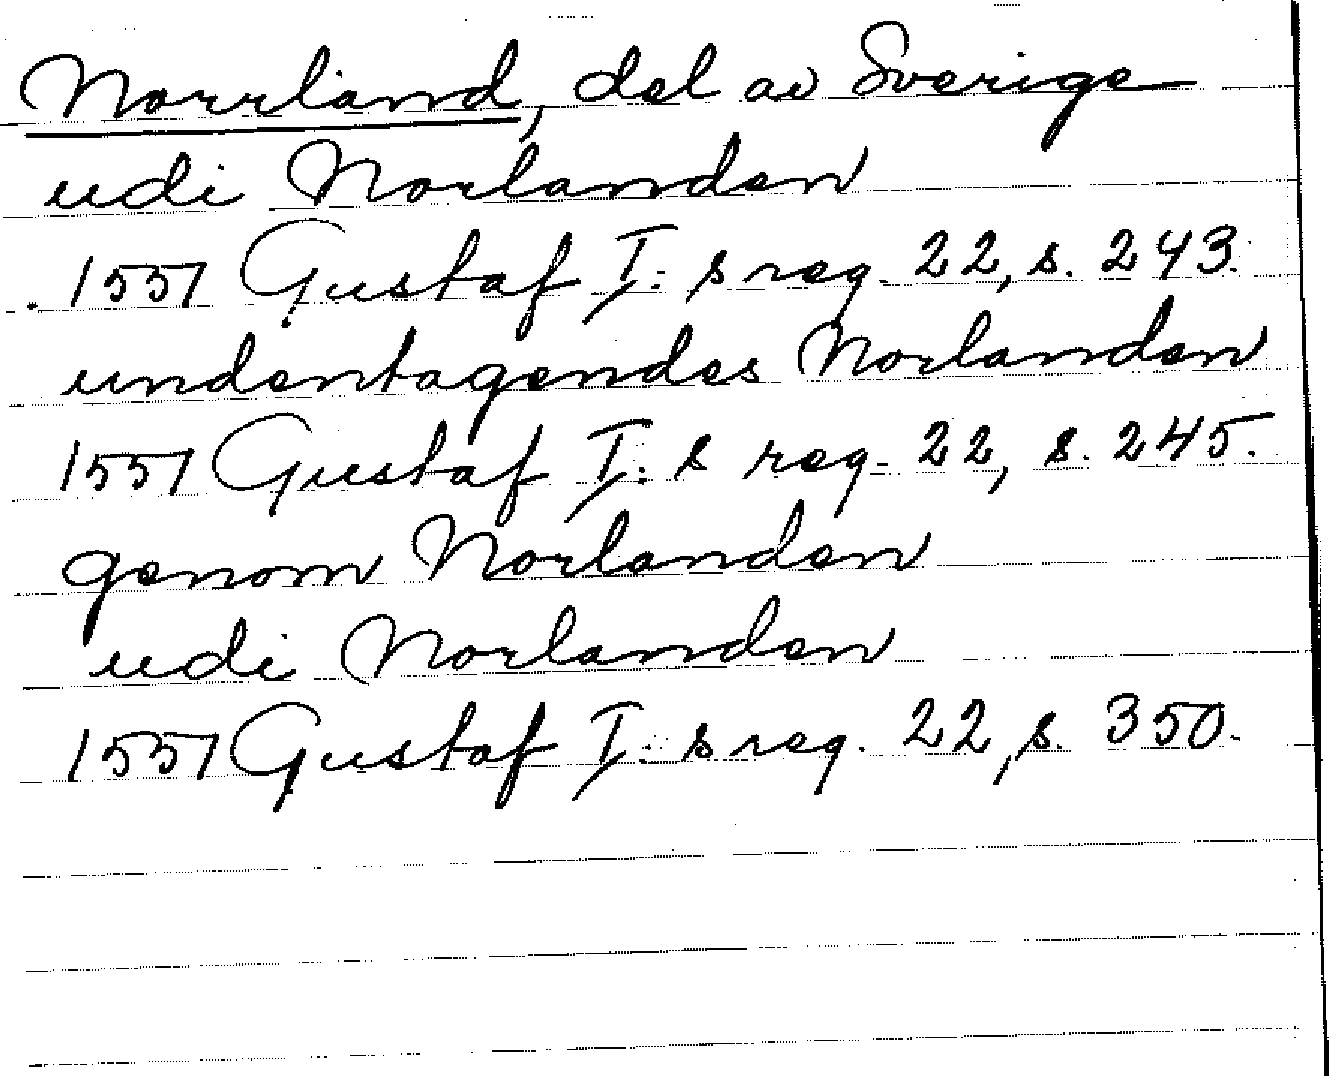 Norrland, del av Sverige
udi Norlanden
1557 Gustaf I:s reg. 22, s. 243.
undentagendes Norlanden
1557 Gustaf I:s reg. 22, s. 245.
genom Norlanden
udi Norlanden
1557 Gustaf I:s reg. 22, s. 350.